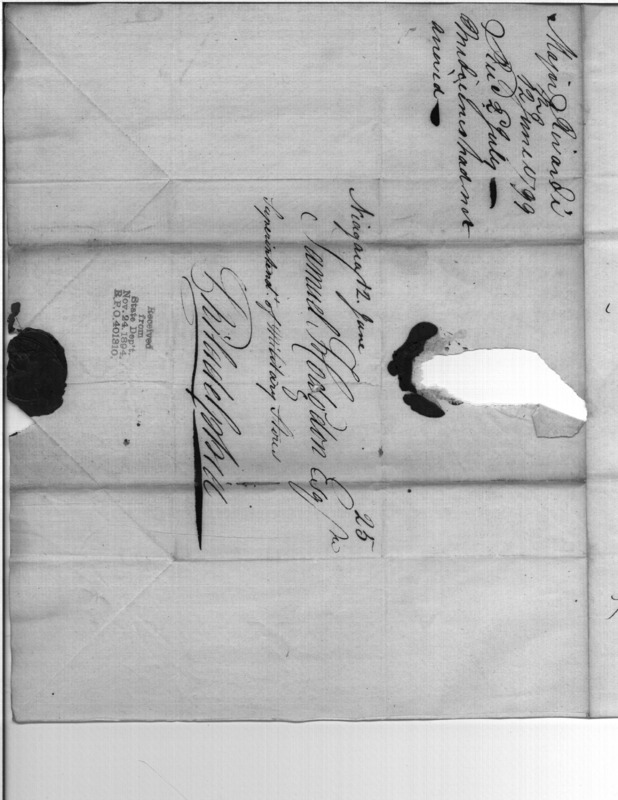 Major Rivardi
12th June 1799
Recd 2 July
ansrd
Niagara 12. June
25
Samuel Hodgdon Esqr
Superintendt. of Military Stores
Philadelphia
Received
from
State Dep't.
Nov. 24, 1894.
R.P.O. 401810.